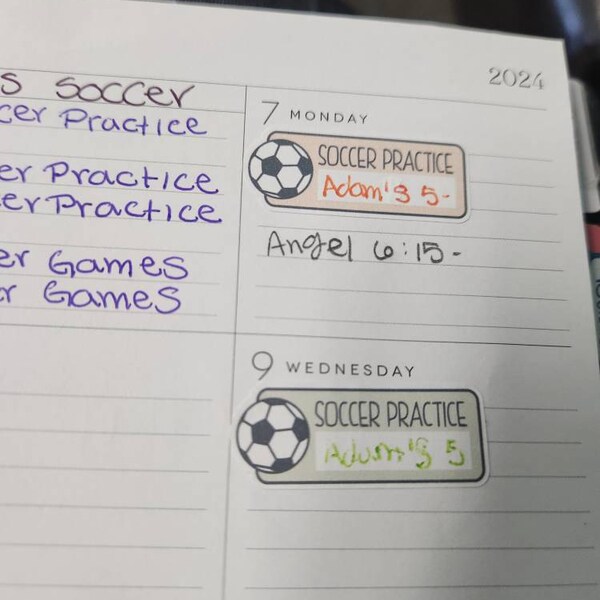 2024
s Soccer
cer Practice
er Practice
er Practice
er Games
r Games
7 MONDAY
SOCCER PRACTICE
Adam's 5-
Angel 6:15-
9 WEDNESDAY
SOCCER PRACTICE
Adam's 5